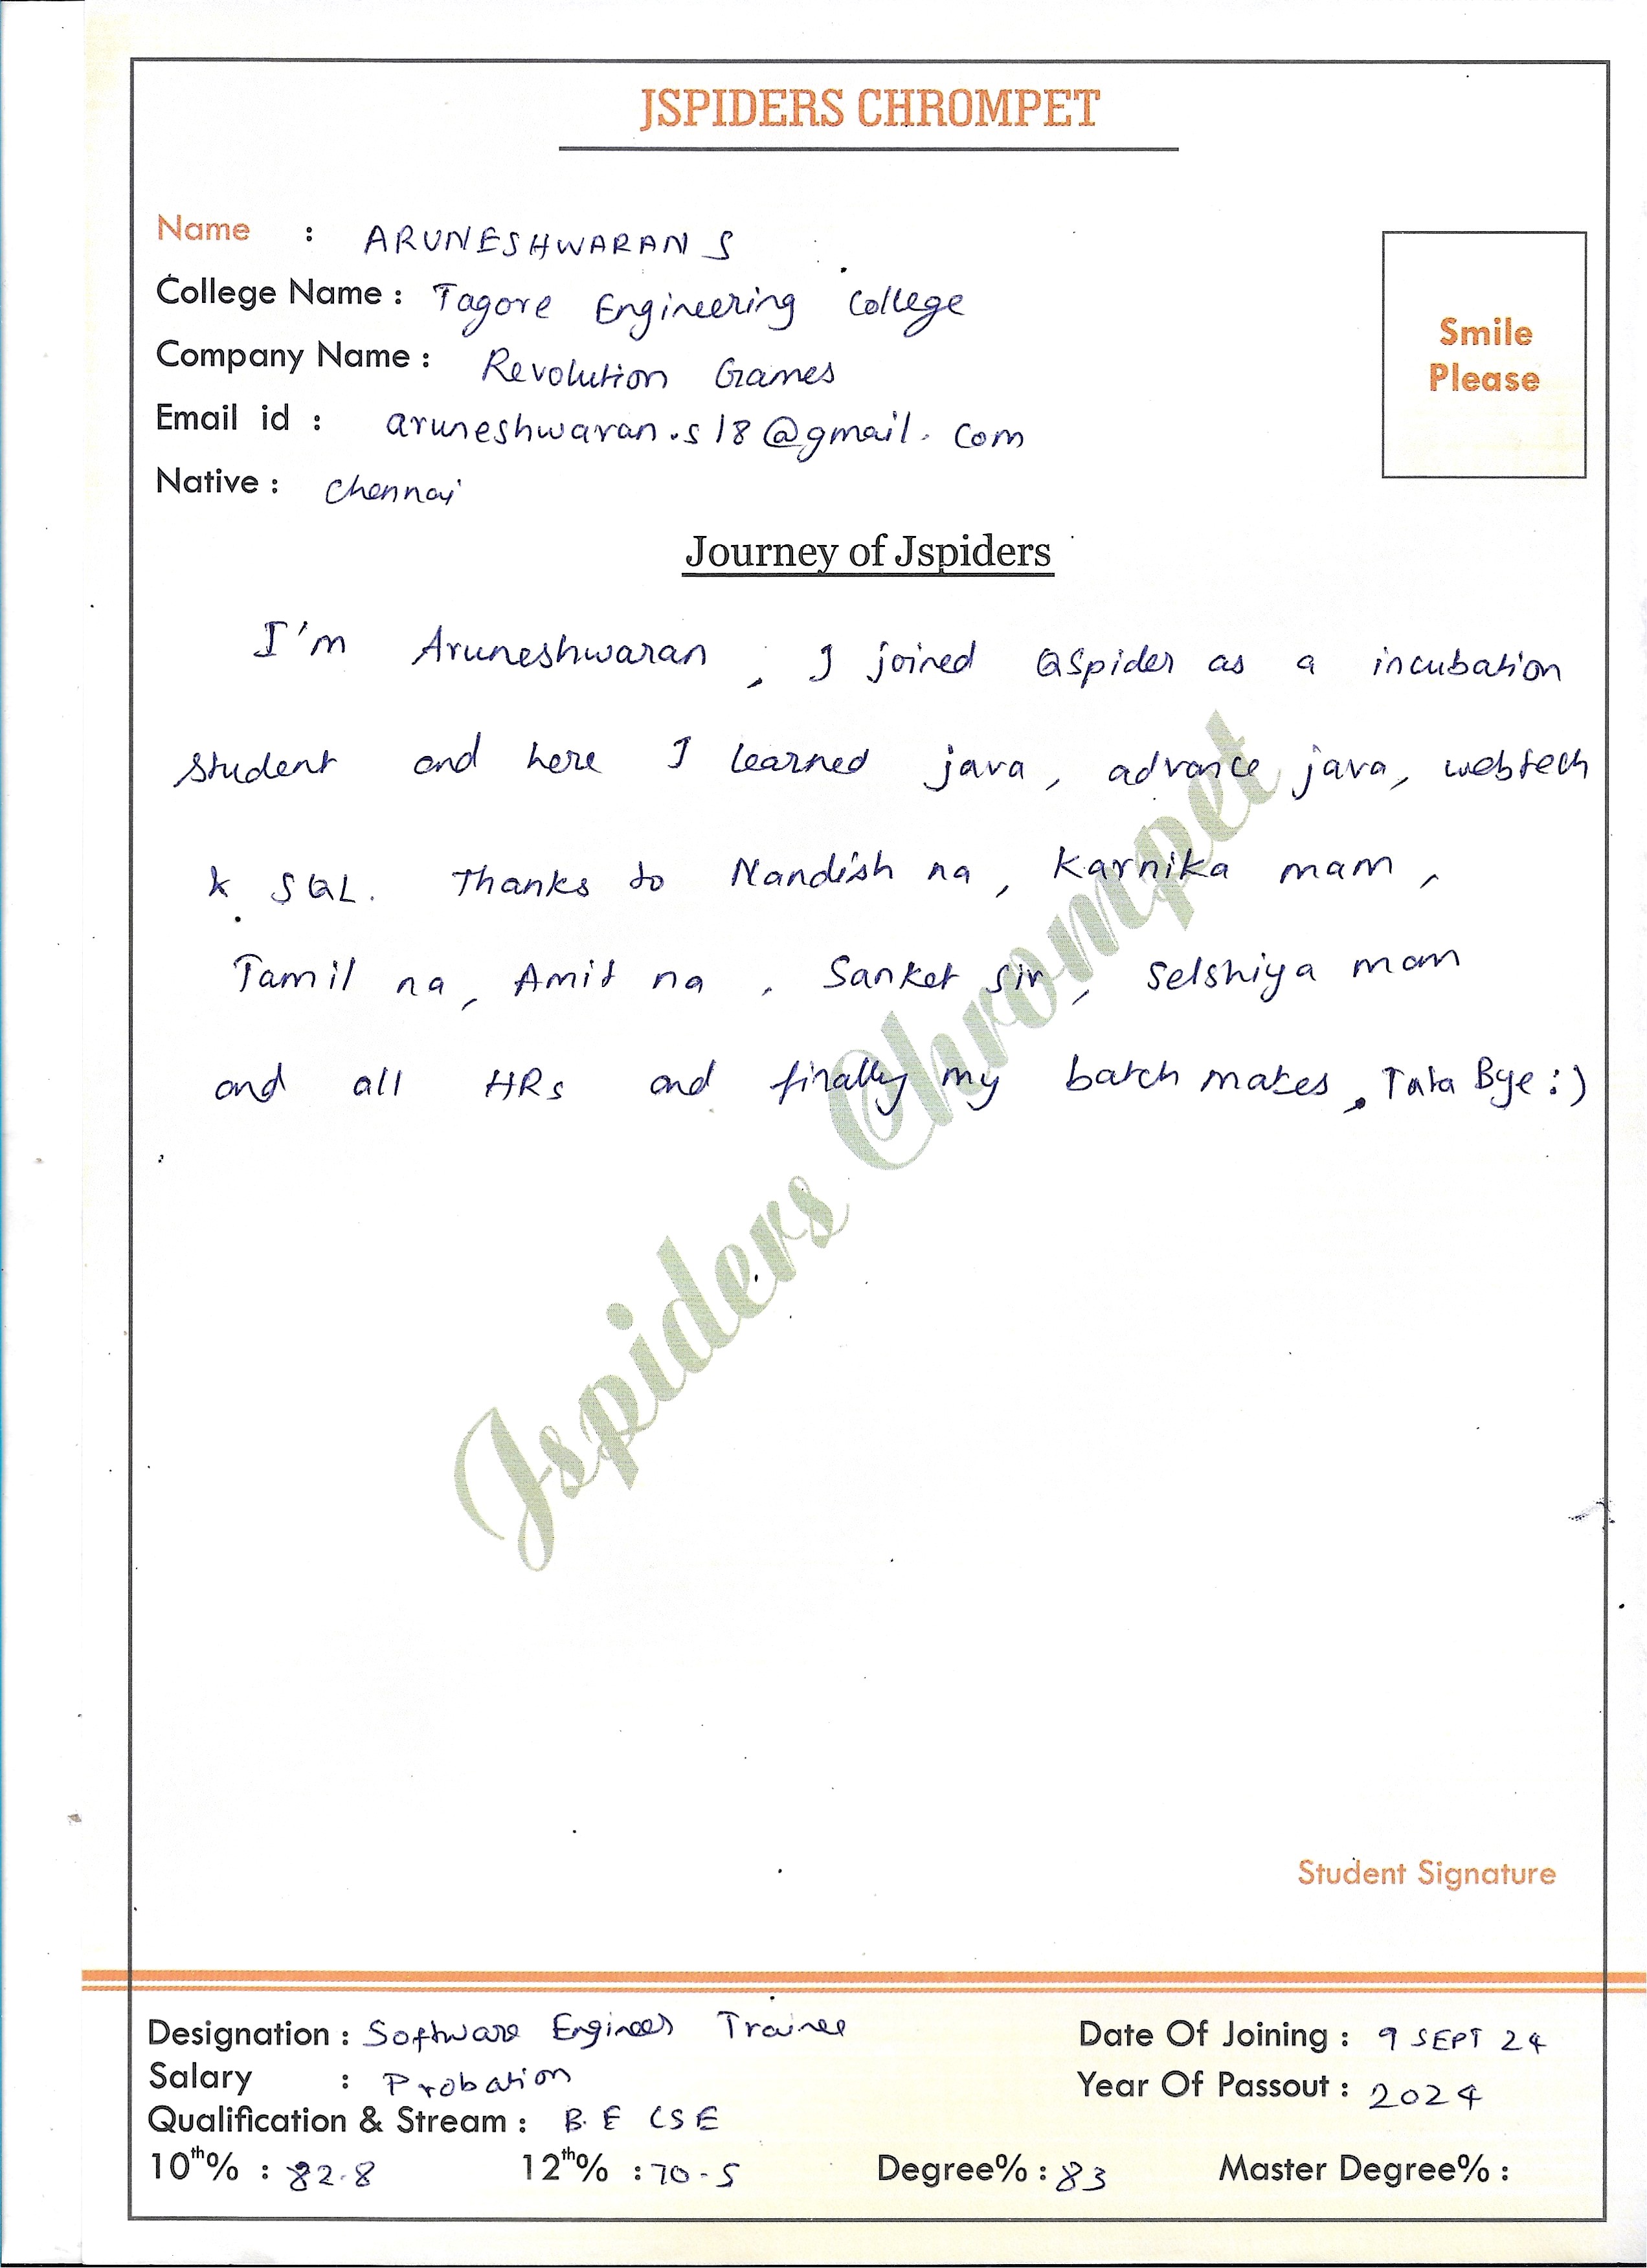 JSPIDERS CHROMPET
Name : ARUNESHWARAN S
College Name : Tagore Engineering College
Company Name : Revolution Games
Email id : aruneshwaran.s18@gmail.com
Native : Chennai
Smile
Please
Journey of Jspiders
I'm Aruneshwaran, I joined QSpider as a incubation
student and here I learned java, advance java, webtech
& SQL. Thanks to Nandish na, Karnika mam,
Tamil na, Amit na, Sanket sir, Selshiya mam
and all HRs and finally my batch mates, Tata Bye :)
Jspiders Chrompet
Student Signature
Designation : Software Engineer Trainee
Date Of Joining : 9 SEPT 24
Salary : Probation
Year Of Passout : 2024
Qualification & Stream : B.E CSE
10th% : 82.8 12th% : 70.5 Degree% : 83 Master Degree% :